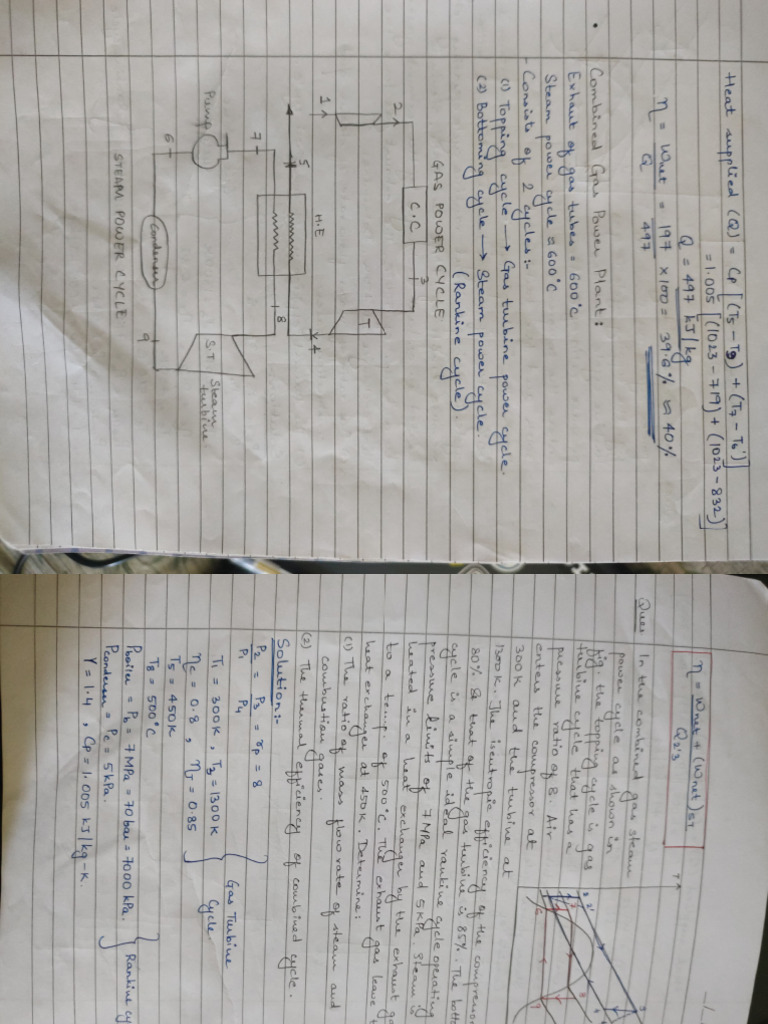 Heat supplied (Q) = Cp [(T5 - T9) + (T7 - T6')]
= 1.005 [(1023 - 719) + (1023 - 832)]
Q = 497 kJ/kg
η = Wnet / Q = 197 / 497 × 100 = 39.6% ≈ 40%
Combined Gas Power Plant:
Exhaut of gas tubes = 600°C
Steam power cycle = 600°C
- Consists of 2 cycles:-
(1) Topping cycle → Gas turbine power cycle.
(2) Bottoming cycle → Steam power cycle.
(Rankine cycle).
GAS POWER CYCLE
C.C
2
3
T
1
4
5
H.E
7
8
Pump
S.T
Steam turbine
6
Condenser
9
STEAM POWER CYCLE
η = Wnet + (Wnet)ST / Q2'3
Ques In the combined gas steam
power cycle as shown in
fig. the topping cycle is gas
turbine cycle that has a
pressure ratio of 8. Air
enters the compressor at
300K and the turbine at
1300K. The isentropic efficiency of the compressor
80% & that of the gas turbine is 85%. The
cycle is a simple ideal rankine cycle operating
pressure limits of 7 MPa and 5 kPa. Steam is
heated in a heat exchanger by the exhaust
to a temp. of 500°C. The exhaust gas leave
heat exchanger at 450K. Determine:
(1) The ratio of mass flow rate of steam and
combustion gases.
(2) The thermal efficiency of combined cycle.
Solution:-
P2/P1 = P3/P4 = rp = 8
T1 = 300K, T3 = 1300K
ηc = 0.8, ηT = 0.85
T5 = 450K
Gas Turbine
Cycle.
T8 = 500°C
Pboiler = Pb = 7 MPa = 70 bar = 7000 kPa.
Pcondenser = Pc = 5 kPa.
Rankine
γ = 1.4, Cp = 1.005 kJ/kg-K.